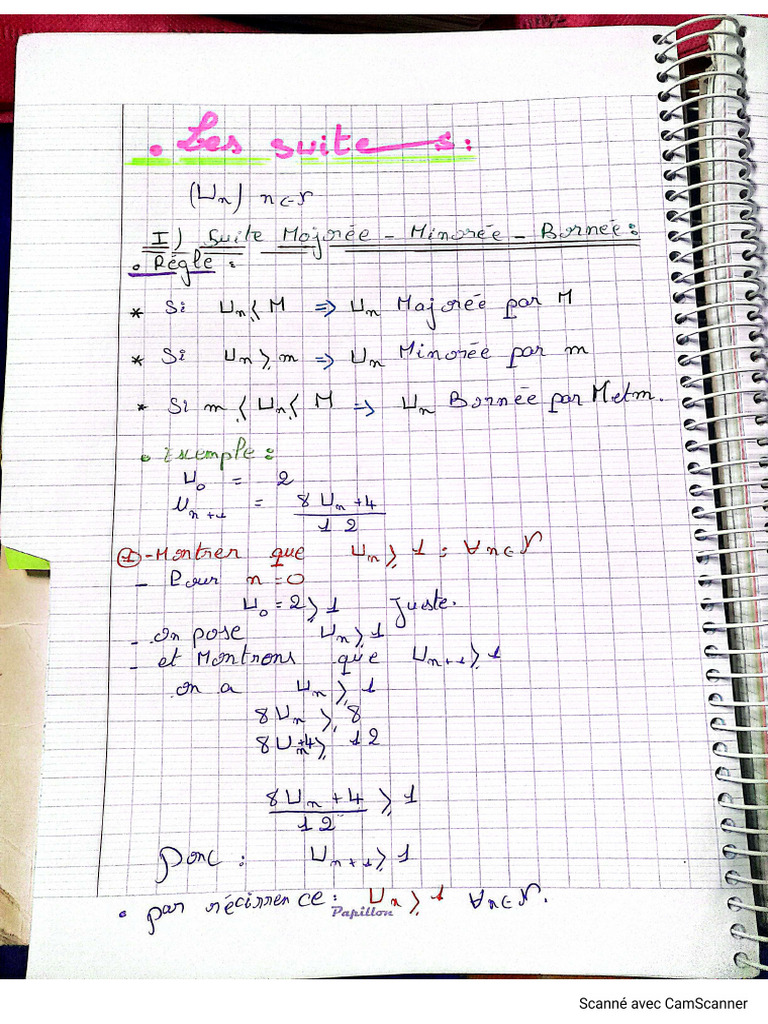 • Les suites :
(Un) n∈N
I) Suite Majorée - Minorée - Bornée :
• Régle :
* Si Un ⩽ M ⇒ Un Majorée par M
* Si Un ⩾ m ⇒ Un Minorée par m
* Si m ⩽ Un ⩽ M ⇒ Un Bornée par M et m.
• Exemple :
U0 = 2
Un+1 = (8Un+4)/12
① - Montrer que Un ⩾ 1 : ∀n∈N
- Pour n = 0
U0 = 2 ⩾ 1 Juste.
- on pose Un ⩾ 1
- et Montrons que Un+1 ⩾ 1
on a Un ⩾ 1
8Un ⩾ 8
8Un+4 ⩾ 12
(8Un+4)/12 ⩾ 1
Donc : Un+1 ⩾ 1
• par récurrence : Un ⩾ 1 ∀n∈N.
Papillon
Scanné avec CamScanner